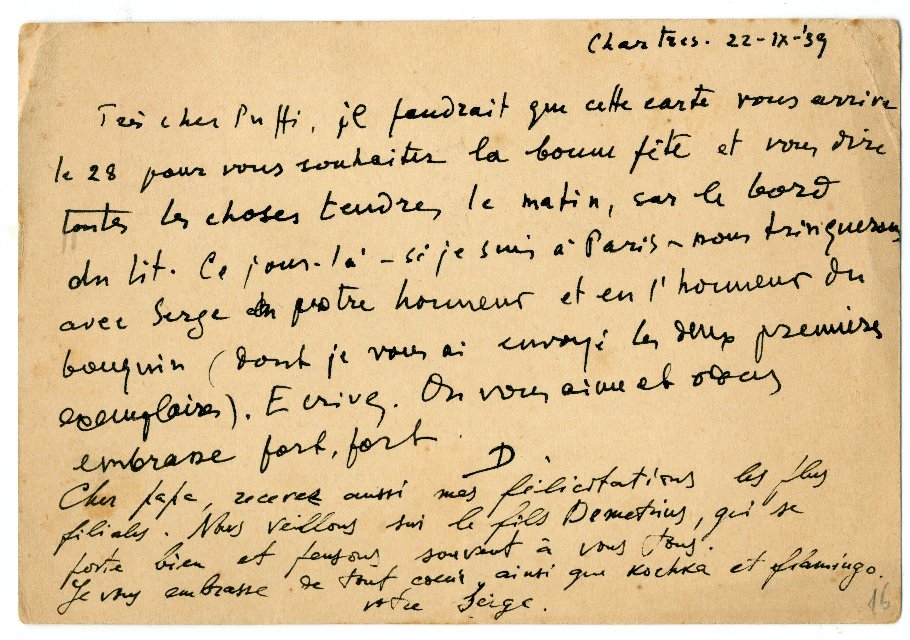 Chartres. 22-IX-'39
Très cher Puffi, il faudrait que cette carte vous arrive
le 28 pour vous souhaiter la bonne fête et vous dire
toutes les choses tendres le matin, sur le bord
du lit. Ce jour-là – si je suis à Paris – nous trinquerons
avec Serge en votre honneur et en l'honneur du
bouquin (dont je vous ai envoyé les deux premiers
exemplaires). Ecrivez. On vous aime et vous
embrasse fort, fort.
D
Cher papa, recevez aussi mes félicitations les plus
filiales. Nous veillons sur le fils Demetrius, qui se
porte bien et pensons souvent à vous tous.
Je vous embrasse de tout coeur, ainsi que Kochka et flamingo.
votre Serge.
16